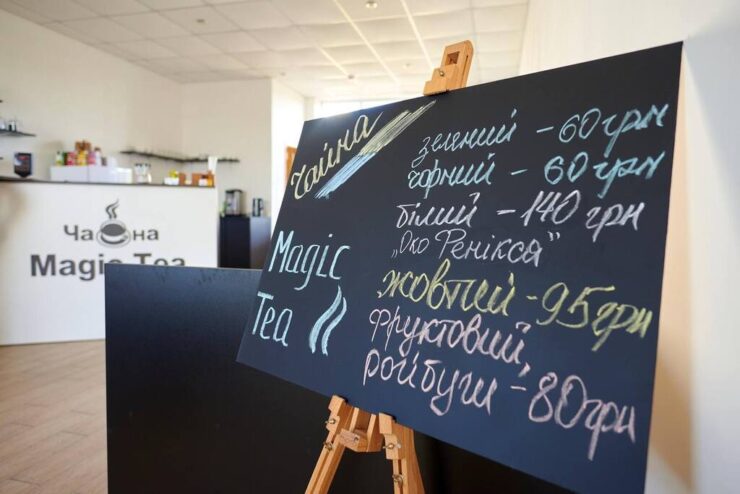 Чайна
Magic
Tea
зелений - 60 грн
чорний - 60 грн
білий - 140 грн
„Око Фенікса"
жовтий - 95 грн
фруктовий,
ройбуш - 80 грн
Чайна
Magic Tea